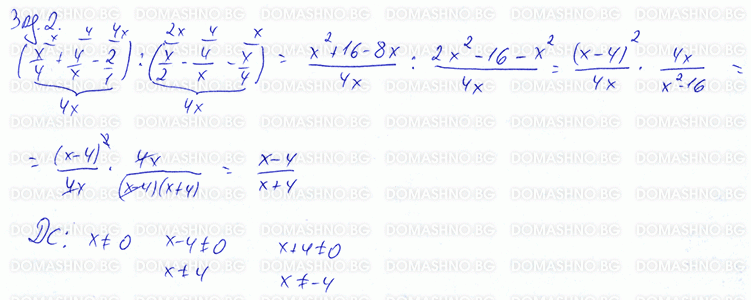 Зад. 2.
(x/4 + 4/x - 2/1) : (x/2 - 4/x - x/4) = (x² + 16 - 8x)/4x : (2x² - 16 - x²)/4x = (x-4)²/4x · 4x/(x²-16) =
= (x-4)²/4x · 4x/((x-4)(x+4)) = (x-4)/(x+4)
ДС: x ≠ 0 x-4 ≠ 0 x+4 ≠ 0
x ≠ 4 x ≠ -4